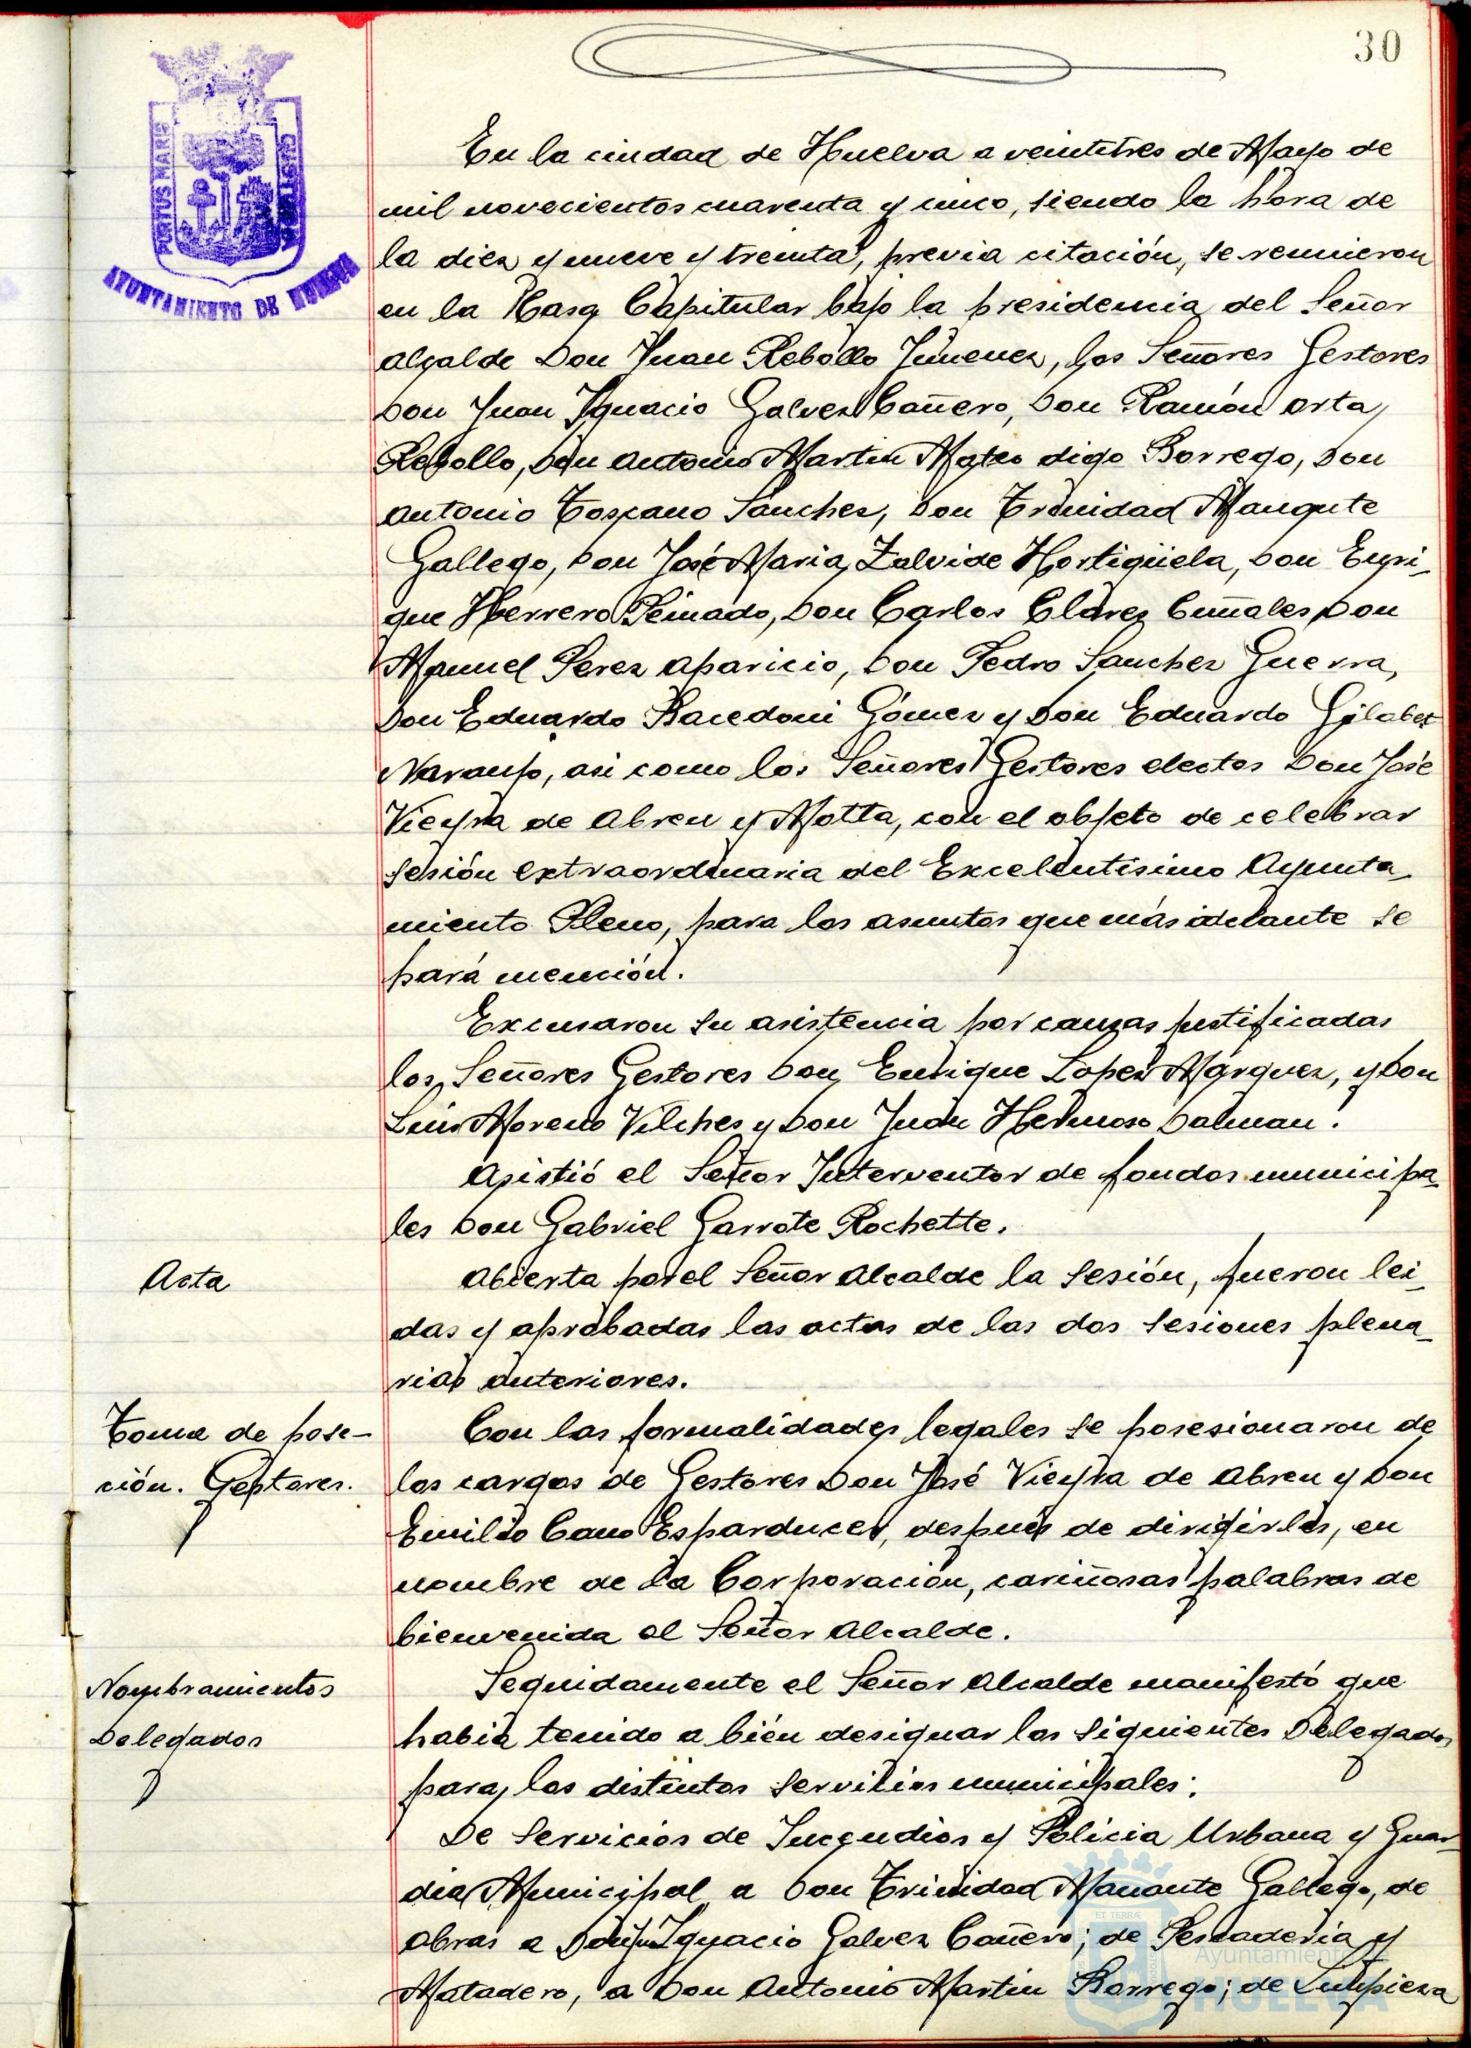 30
PORTUS MARIS
ET TERRÆ CUSTODIA
AYUNTAMIENTO DE HUELVA
En la ciudad de Huelva a veintitres de Mayo de
mil novecientos cuarenta y cinco, siendo la hora de
la diez y nueve y treinta, previa citación, se reunieron
en la Casa Capitular bajo la presidencia del Señor
Alcalde Don Juan Rebollo Jimenez, los Señores Gestores
Don Juan Ignacio Galvez Cañero, Don Ramón Orta
Rebollo, Don Antonio Martin Mateo digo Borrego, Don
Antonio Toscano Sanchez, Don Trinidad Mangute
Gallego, Don José Maria Zalvide Hortigüela, Don Enri-
que Herrero Peinado, Don Carlos Clarez Cumales, Don
Manuel Perez Aparicio, Don Pedro Sanchez Guerra,
Don Eduardo Bacedoni Gómez y Don Eduardo Gilabet
Naranjo, asi como los Señores Gestores electos Don José
Vieyra de Abreu y Motta, con el objeto de celebrar
sesión extraordinaria del Excelentisimo Ayunta-
miento Pleno, para los asuntos que más adelante se
hará mención.
Excusaron su asistencia por causas justificadas
los Señores Gestores Don Enrique López Márquez, y Don
Luis Moreno Vilches y Don Juan Hermoso Dalman.
Asistió el Señor Interventor de fondos municipa-
les Don Gabriel Garrote Rochette.
Acta
Abierta por el Señor Alcalde la sesión, fueron lei-
das y aprobadas las actas de las dos sesiones plena-
rias anteriores.
Toma de pose-
ción. Gestores.
Con las formalidades legales se posesionaron de
los cargos de Gestores Don José Vieyra de Abreu y Don
Emilio Cano Esparducer, después de dirigirles, en
nombre de la Corporación, cariñosas palabras de
bienvenida el Señor Alcalde.
Nombramientos
Delegados
Seguidamente el Señor Alcalde manifestó que
habia tenido a bién designar los siguientes Delegados
para los distintos servicios municipales:
De servicios de Incendios y Policia Urbana y Guar-
dia Municipal a Don Trinidad Manante Gallego, de
Obras a Don Ju Ignacio Galvez Cañero; de Pescaderia y
Matadero, a Don Antonio Martin Borrego; de Limpieza
ET TERRÆ
Ayuntamiento de
HUELVA